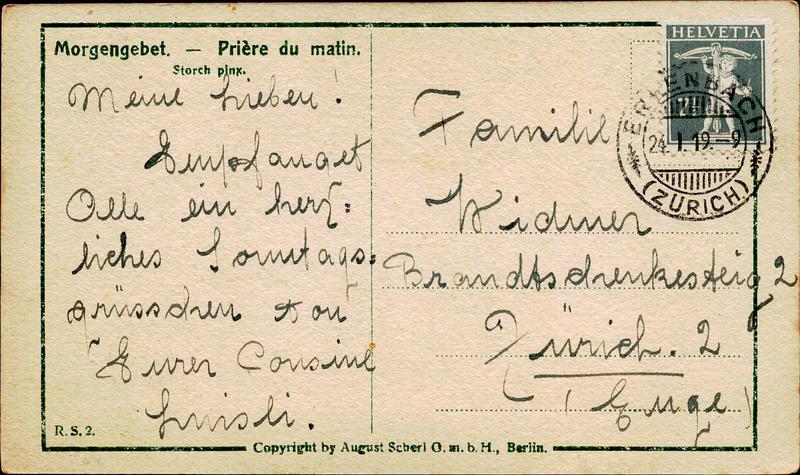 Morgengebet. — Prière du matin.
Storch pinx.
Meine Lieben!
Empfanget
Alle ein herz=
liches Sonntags=
grüsschen von
Eurer Cousine
Luisli.
R. S. 2.
HELVETIA
ERLENBACH
24. I. 19.-9
(ZÜRICH)
Familie
Widmer
Brandtschenkesteig 2
Zürich. 2
(Enge)
Copyright by August Scherl G. m. b. H., Berlin.